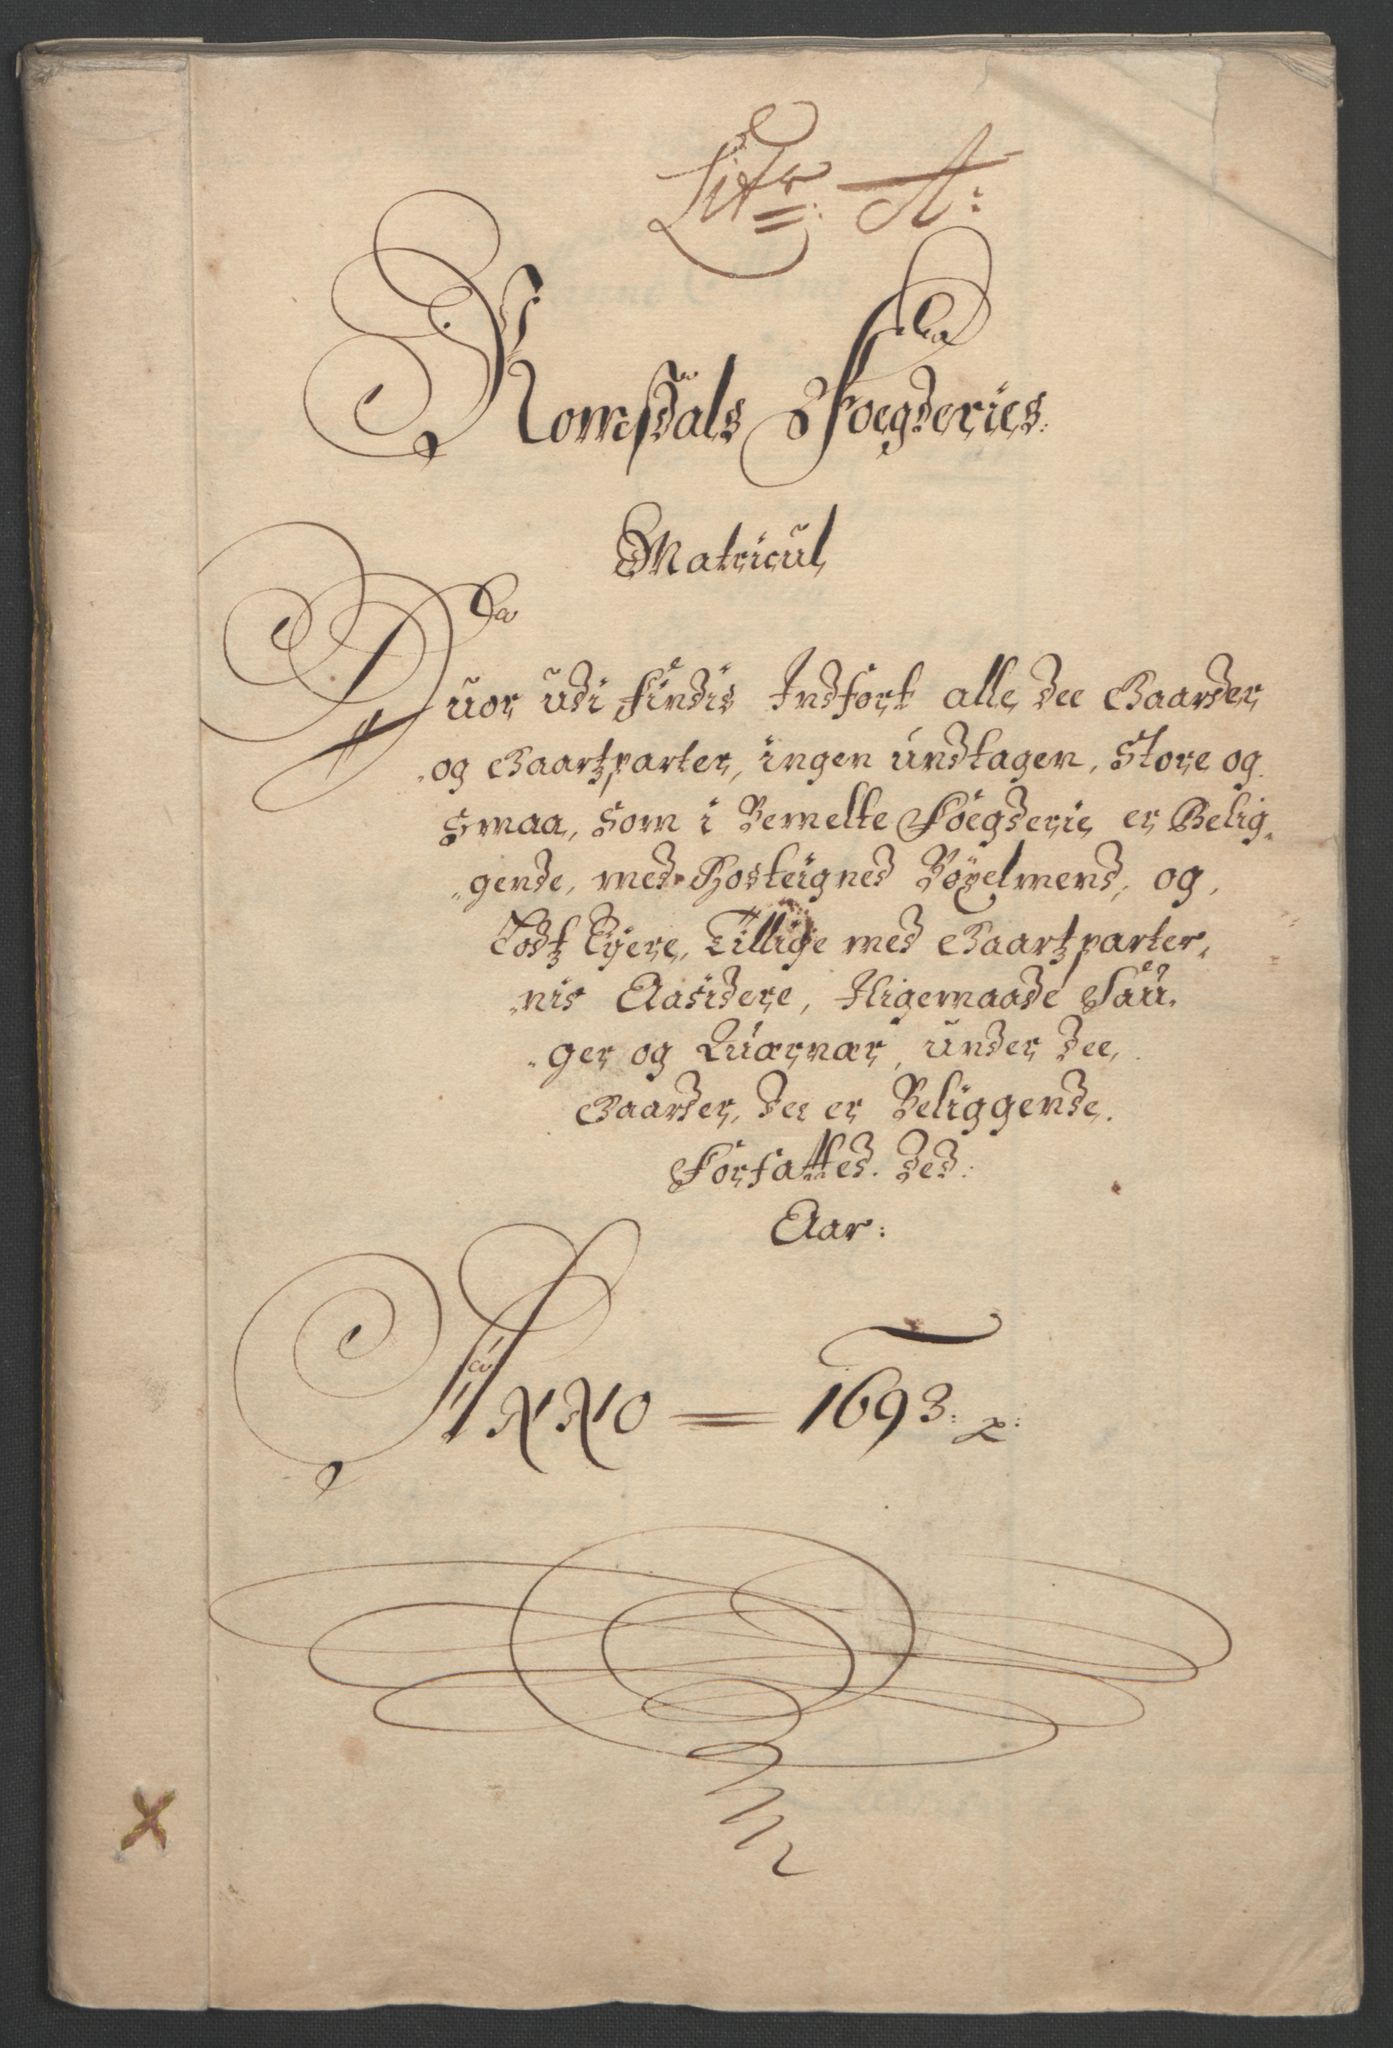 Litr: A:
Romsdals Foegderies.
Matricul
Huor udi findis Indført alle dee Gaarder
og Gaartzparter, ingen undtagen, Store og
Smaa, Som i bemelte Foegderie er Belig-
gende, med Hosteigned Böxelmend, og
Jodtz Eÿere, Tillige med Gaartzparter-
nis Aasidere, Iligemaade Sau-
ger og Quærnær, under dee
Gaarder, de er Beliggende.
Forfatted. ded
Aar:
ANNO = 1693: